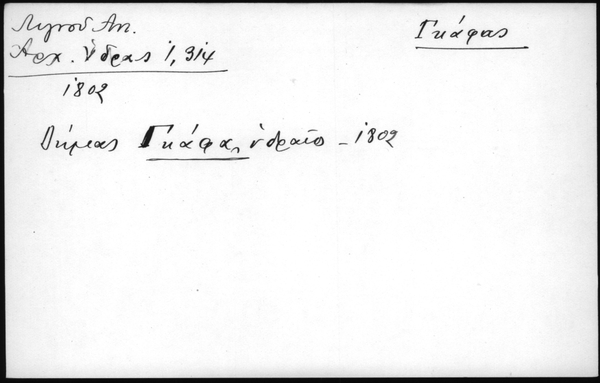 Λιγνοῦ Αντ.
Ἀρχ. Ὕδρας 1, 314
1802
Γκάφας
Δήμας Γκάφας ὑδραῖος - 1802